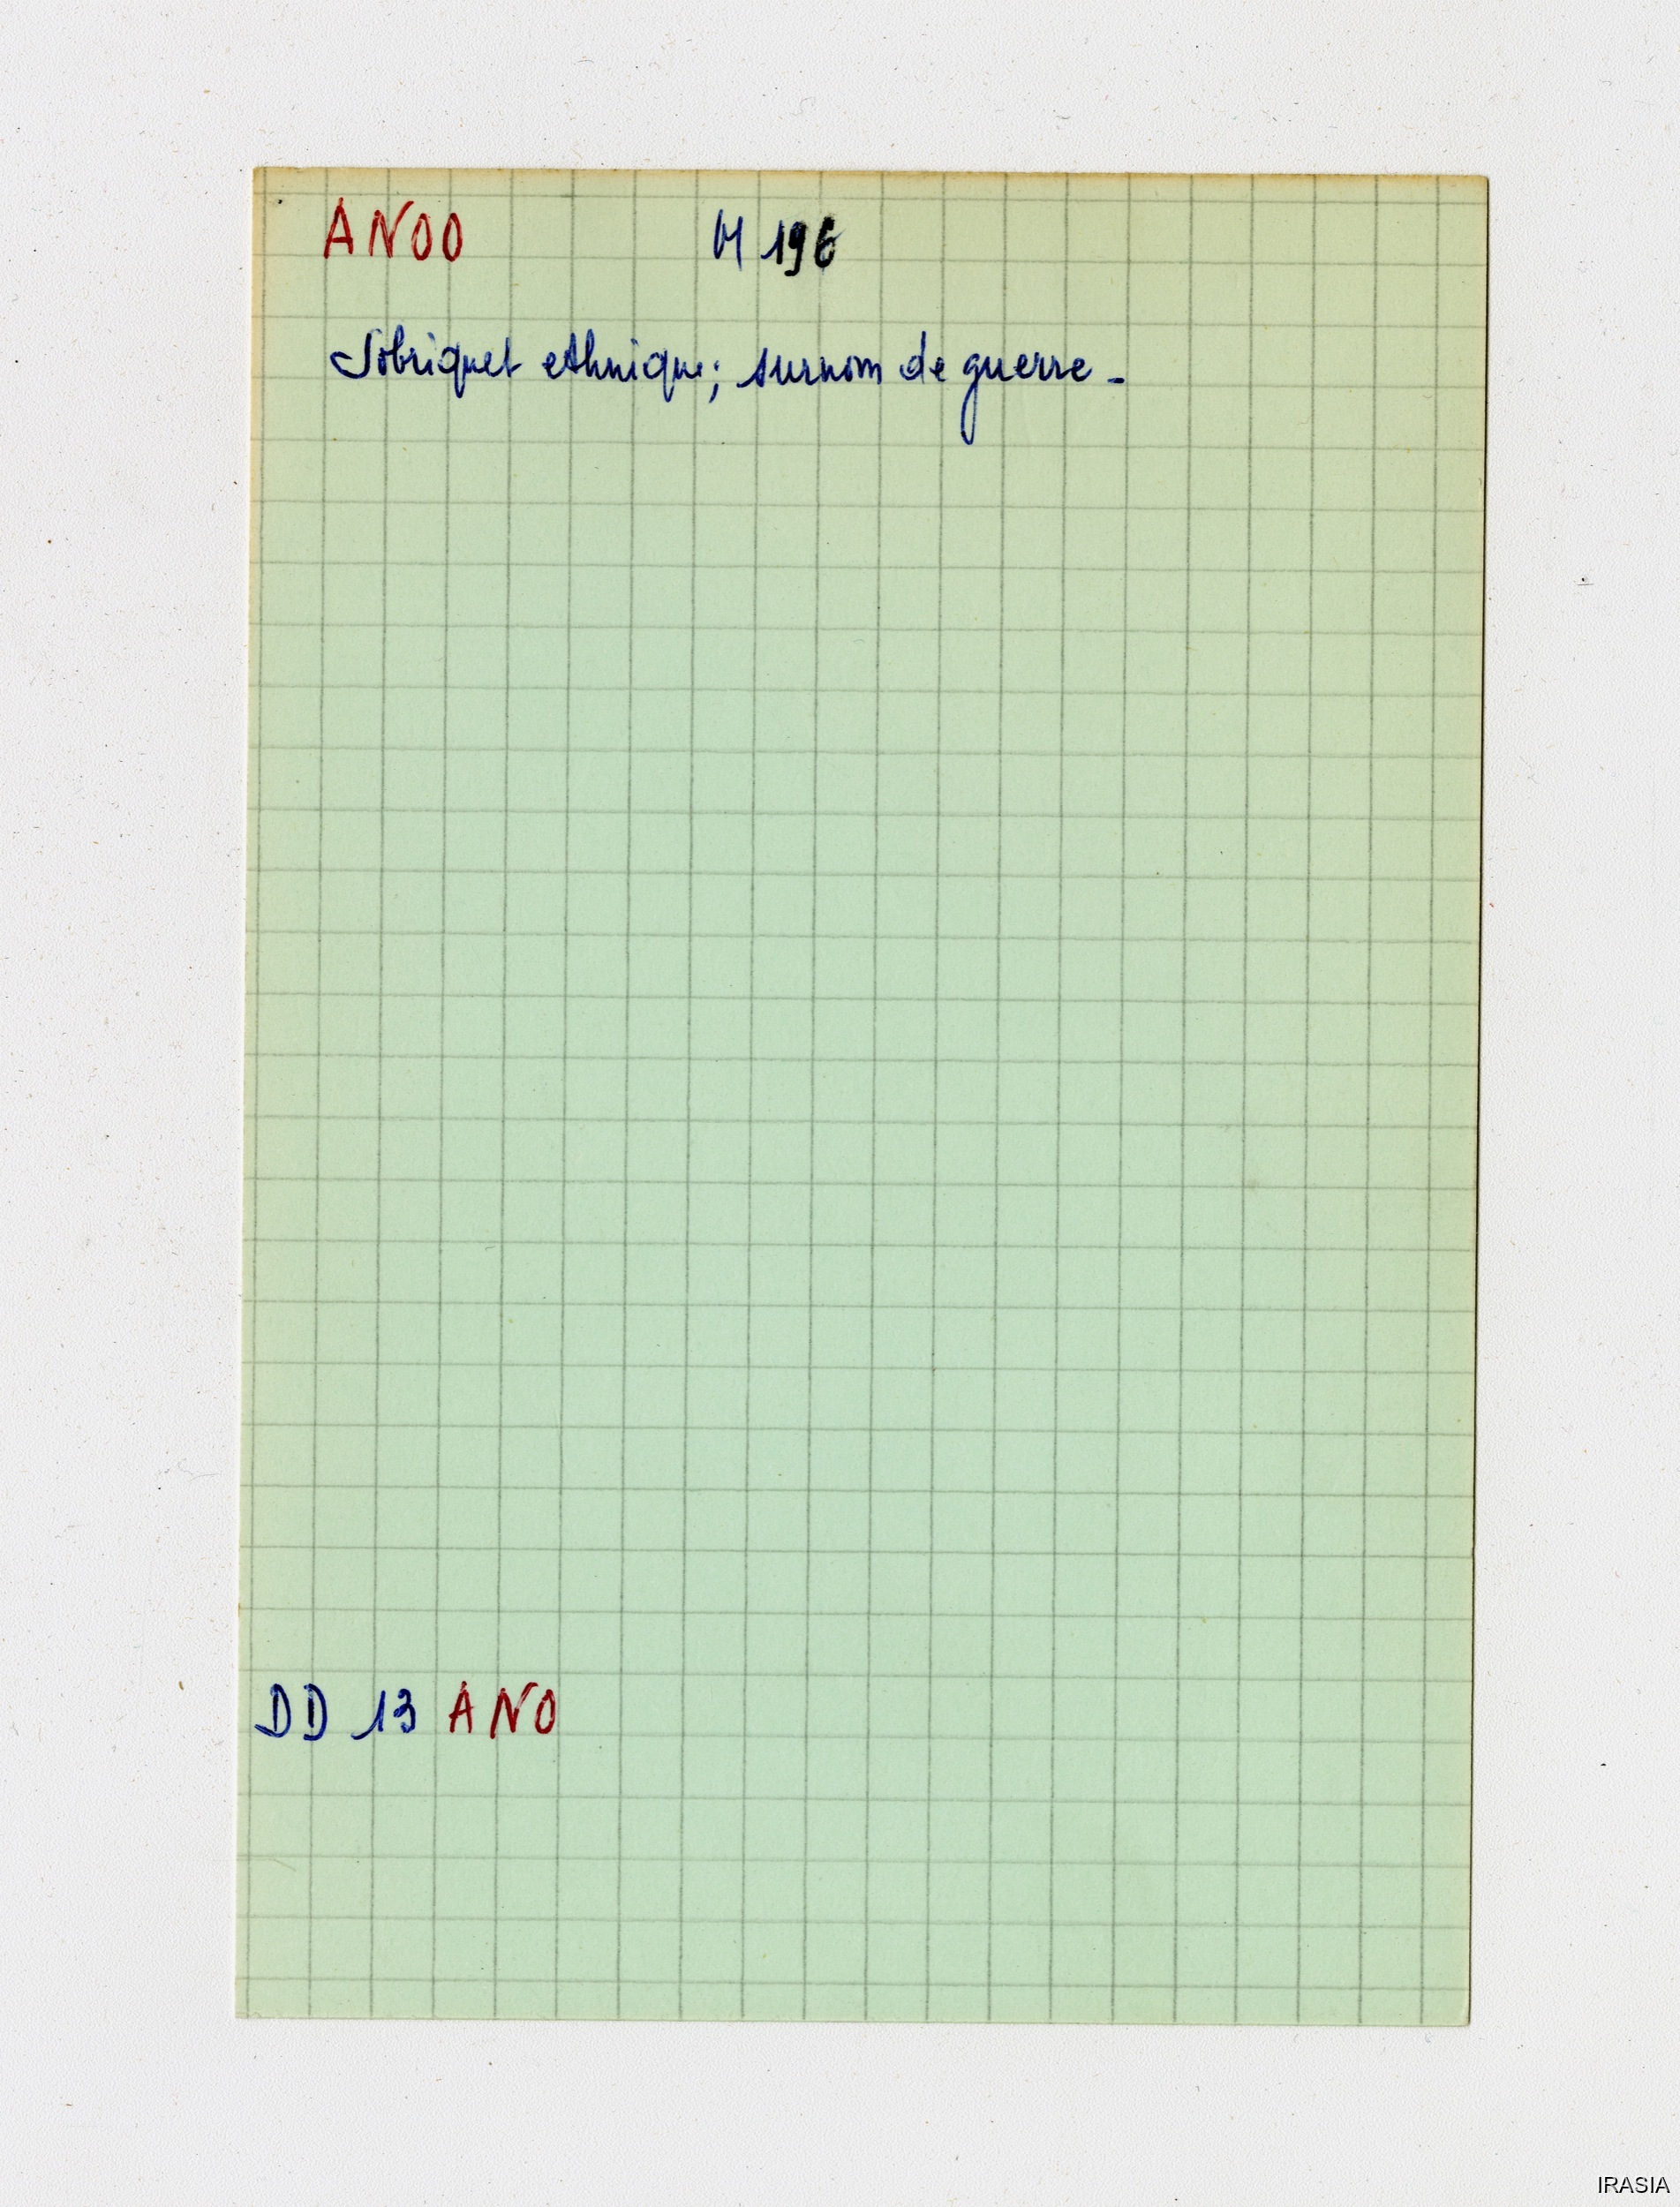 ANOO M 196
Sobriquet ethnique; surnom de guerre -
DD 13 ANO
IRASIA